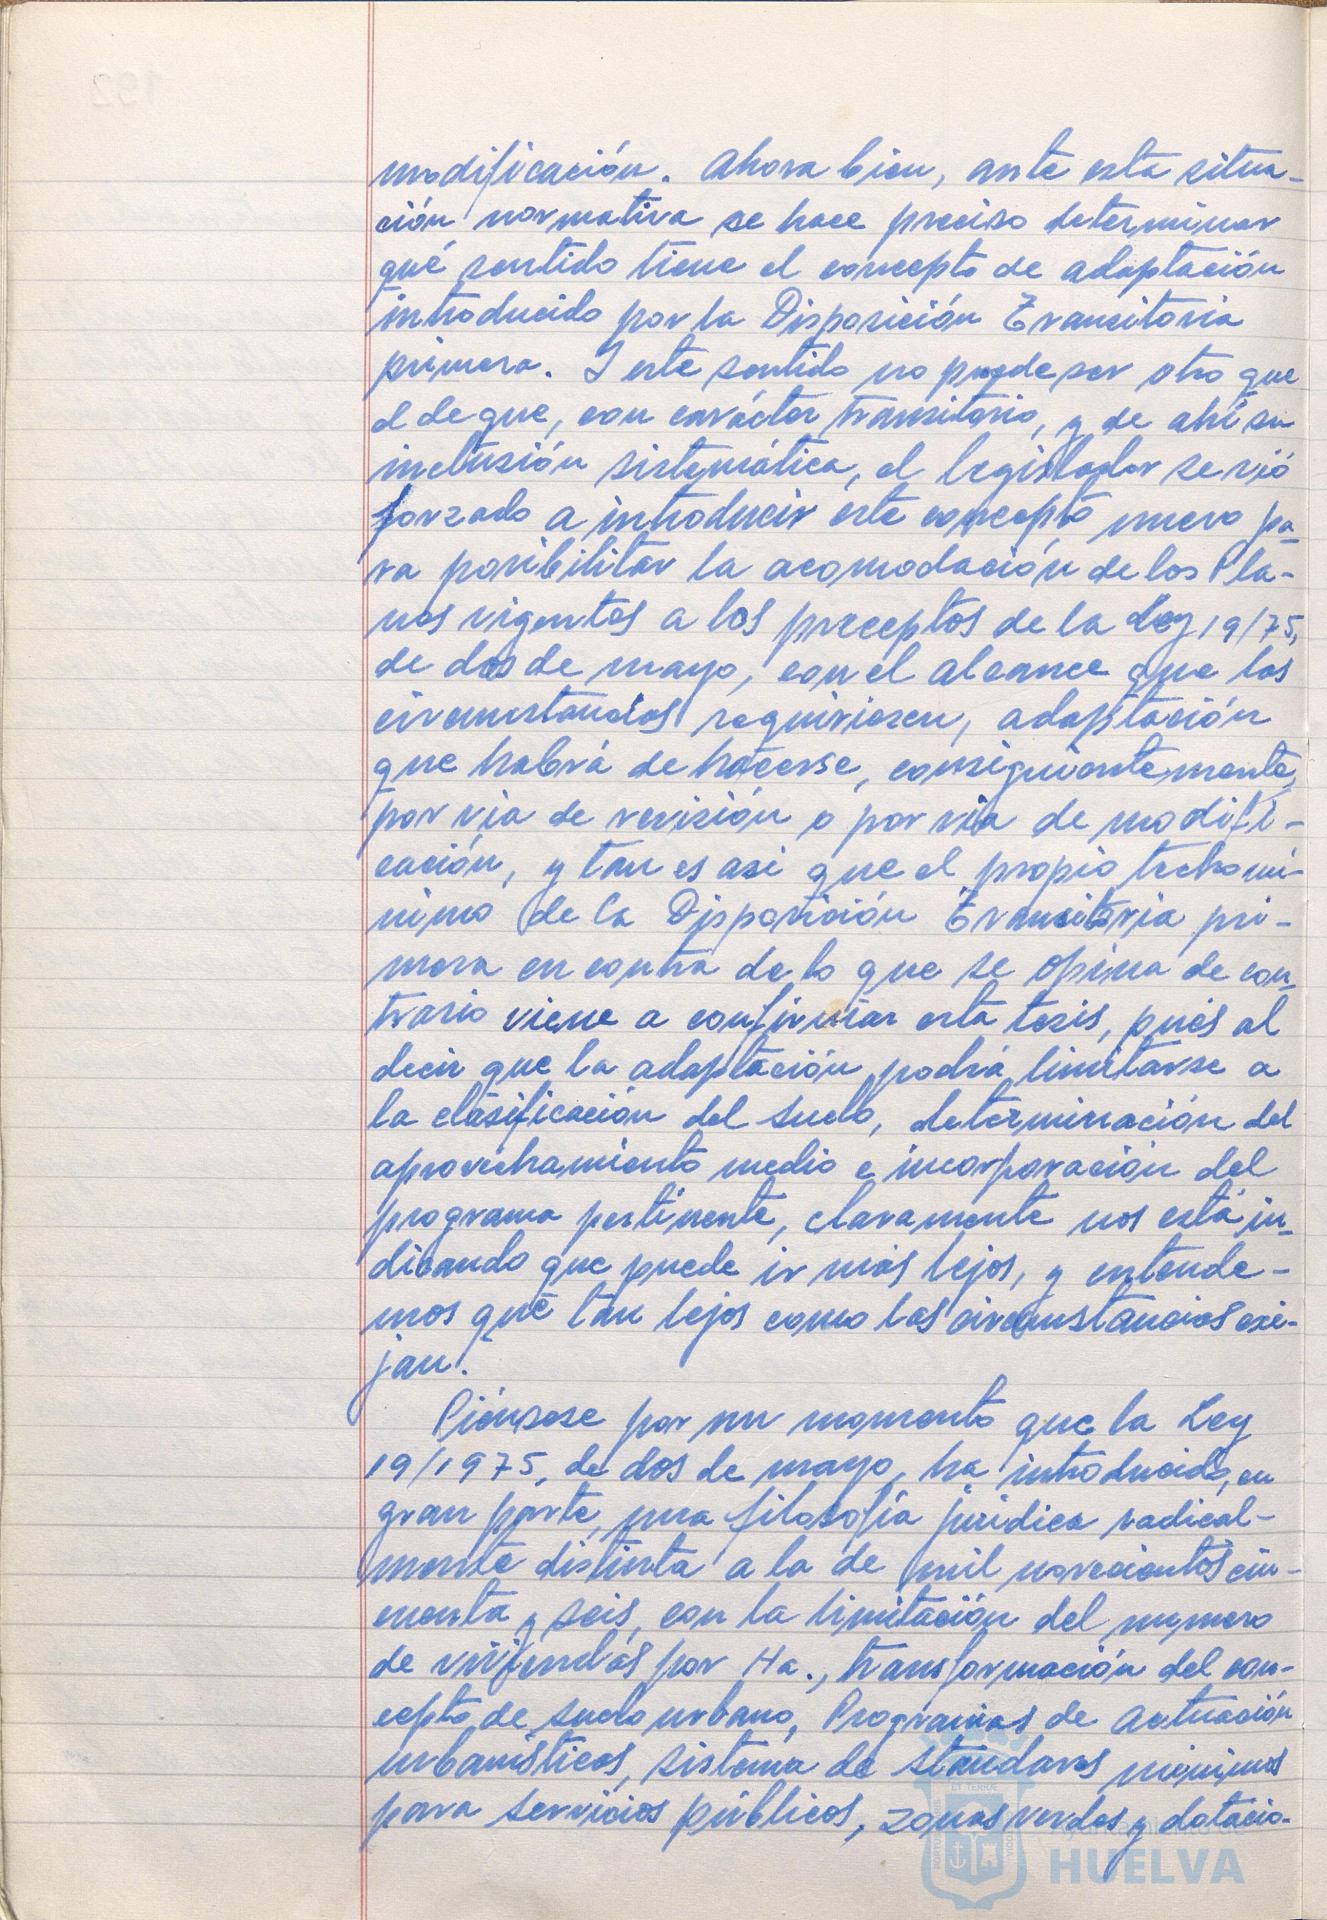 modificación. Ahora bien, ante esta situa-
ción normativa se hace preciso determinar
qué sentido tiene el concepto de adaptación
introducido por la Disposición Transitoria
primera. I este sentido no puede ser otro que
el de que, con carácter transitorio, y de ahí su
inclusión sistemática, el legislador se vió
forzado a introducir este concepto nuevo pa-
ra posibilitar la acomodación de los Pla-
nes vigentes a los preceptos de la Ley 19/75,
de dos de mayo, con el alcance que las
circunstancias requiriesen, adaptación
que habrá de hacerse, consiguientemente,
por via de revisión o por via de modifi-
cación, y tan es asi que el propio techo mí-
nimo de la Disposición Transitoria pri-
mera en contra de lo que se opina de con-
trario viene a confirmar esta tesis, pués al
decir que la adaptación podrá limitarse a
la clasificación del suelo, determinación del
aprovechamiento medio e incorporación del
programa pertinente, claramente nos está in-
dicando que puede ir más lejos, y entende-
mos que tan lejos como las circunstancias exi-
jan.
Piénsese por un momento que la Ley
19/1975, de dos de mayo, ha introducido, en
gran parte, una filosofía jurídica radical-
mente distinta a la de mil novecientos cin-
cuenta y seis, con la limitación del numero
de viviendas por Ha., transformación del con-
cepto de suelo urbano, Programas de Actuación
urbanísticos, sistema de standares mínimos
para servicios públicos, zonas verdes y dotacio-
Ayuntamiento de
HUELVA